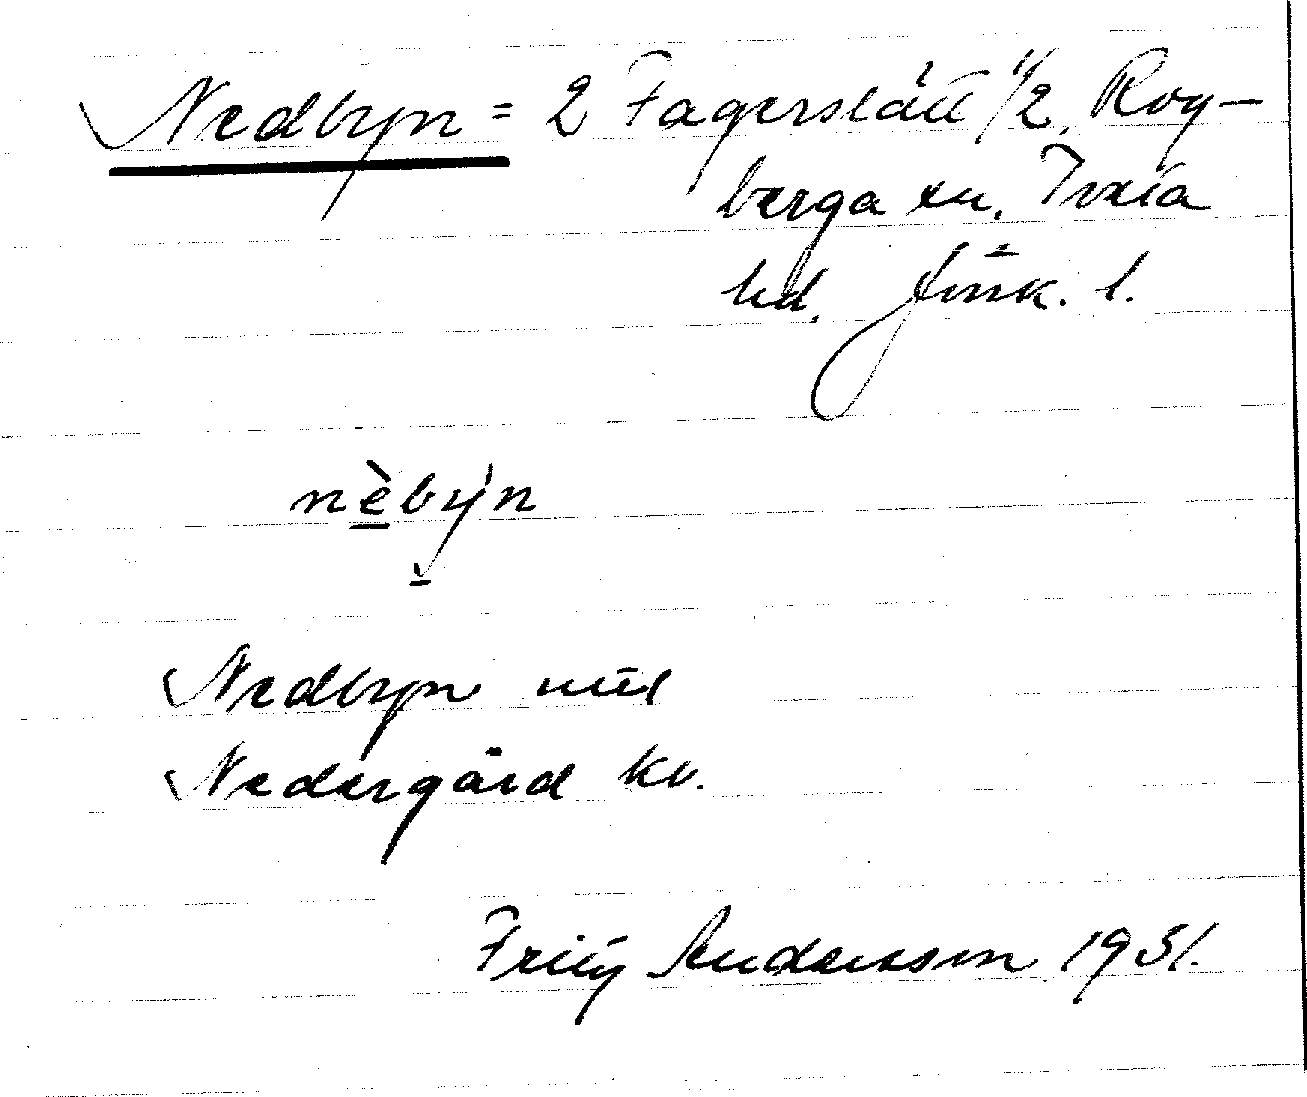 Nedbyn = 2 Fagerslätt 1/2, Rog-
berga sn. Tveta
hd. Jönk. l.
nèbýn
Nedbyn
Nedergård kv.
Fritz Andersson 1931.